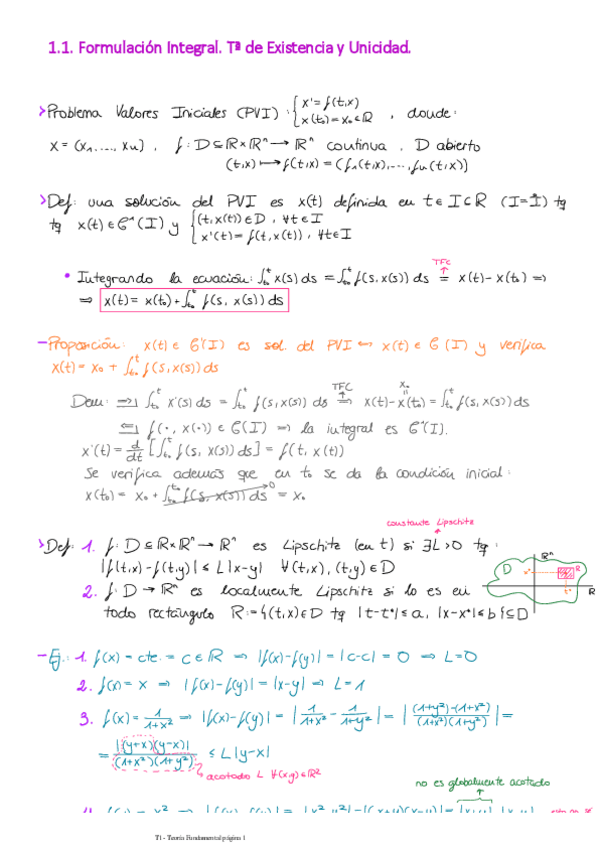 1.1. Formulación Integral. Tª de Existencia y Unicidad.
> Problema Valores Iniciales (PVI) : { x' = f(t,x)
x(t₀) = x₀ ∈ ℝ , donde:
x = (x₁, ..., xn) , f: D ⊆ ℝ × ℝⁿ → ℝⁿ continua , D abierto
(t,x) ↦ f(t,x) = (f₁(t,x), ..., fn(t,x))
> Def: una solución del PVI es x(t) definida en t ∈ I ⊆ ℝ (I = I̊) tq
tq x(t) ∈ C¹(I) y { (t, x(t)) ∈ D , ∀t ∈ I
x'(t) = f(t, x(t)) , ∀t ∈ I
TFC
• Integrando la ecuación: ∫ₜ₀ᵗ x(s) ds = ∫ₜ₀ᵗ f(s, x(s)) ds = x(t) - x(t₀) ⇒
⇒ x(t) = x(t₀) + ∫ₜ₀ᵗ f(s, x(s)) ds
- Proposición: x(t) ∈ C¹(I) es sol. del PVI ⟷ x(t) ∈ C(I) y verifica
x(t) = x₀ + ∫ₜ₀ᵗ f(s, x(s)) ds
TFC x₀
Dem: ⇒| ∫ₜ₀ᵗ x'(s) ds = ∫ₜ₀ᵗ f(s, x(s)) ds ⇒ x(t) - x(t₀) = ∫ₜ₀ᵗ f(s, x(s)) ds
⇐| f(·, x(·)) ∈ C(I) ⇒ la integral es C¹(I).
x'(t) = d/dt [∫ₜ₀ᵗ f(s, x(s)) ds] = f(t, x(t))
Se verifica además que en t₀ se da la condición inicial:
x(t₀) = x₀ + ∫ₜ₀ᵗ⁰ f(s, x(s)) ds⁰ = x₀
constante Lipschitz
> Def: 1. f: D ⊆ ℝ × ℝⁿ → ℝⁿ es Lipschitz (en t) si ∃L > 0 tq:
|f(t,x) - f(t,y)| ≤ L|x-y| ∀(t,x), (t,y) ∈ D
2. f: D → ℝⁿ es localmente Lipschitz si lo es en
todo rectángulo R := {(t,x) ∈ D tq |t-t*| ≤ a, |x-x*| ≤ b} ⊆ D
D ℝⁿ x* R t* ℝ
- Ej.: 1. f(x) = cte. = c ∈ ℝ ⇒ |f(x)-f(y)| = |c-c| = 0 ⇒ L = 0
2. f(x) = x ⇒ |f(x)-f(y)| = |x-y| ⇒ L = 1
3. f(x) = 1/(1+x²) ⇒ |f(x)-f(y)| = |1/(1+x²) - 1/(1+y²)| = |((1+y²)-(1+x²))/((1+x²)(1+y²))| =
= |(y+x)(y-x)|/((1+x²)(1+y²)) ≤ L|y-x|
acotado L ∀(x,y) ∈ ℝ²
no es globalmente acotado
T1 - Teoría Fundamental página 1